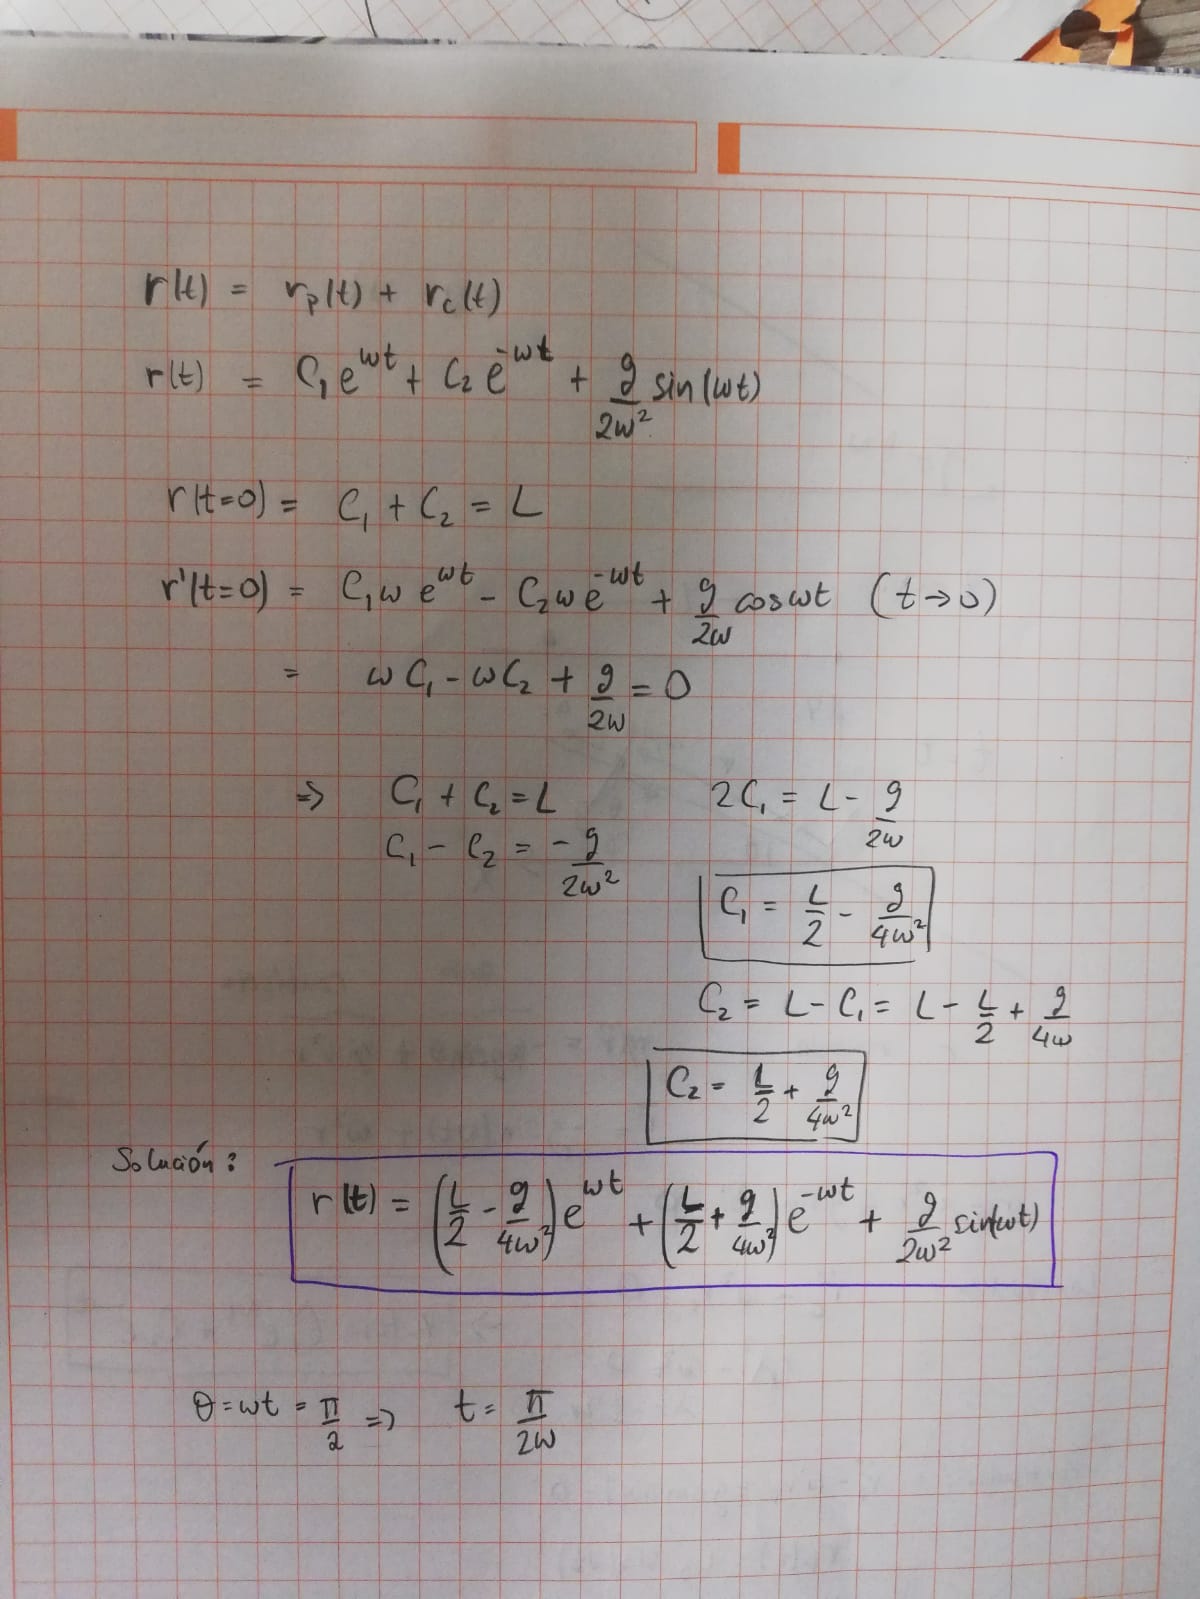 r(t) = rₚ(t) + r_c(t)
r(t) = C₁ e^{ωt} + C₂ e^{-ωt} + g/2ω² sin(ωt)
r(t=0) = C₁ + C₂ = L
r'(t=0) = C₁ω e^{ωt} - C₂ω e^{-ωt} + g/2ω cosωt (t→0)
= ωC₁ - ωC₂ + g/2ω = 0
⇒ C₁ + C₂ = L
C₁ - C₂ = - g/2ω²
2C₁ = L - g/2ω
C₁ = L/2 - g/4ω²
C₂ = L - C₁ = L - L/2 + g/4ω
C₂ = L/2 + g/4ω²
Solución:
r(t) = (L/2 - g/4ω²) e^{ωt} + (L/2 + g/4ω²) e^{-ωt} + g/2ω² sin(ωt)
θ = ωt = π/2 ⇒ t = π/2ω